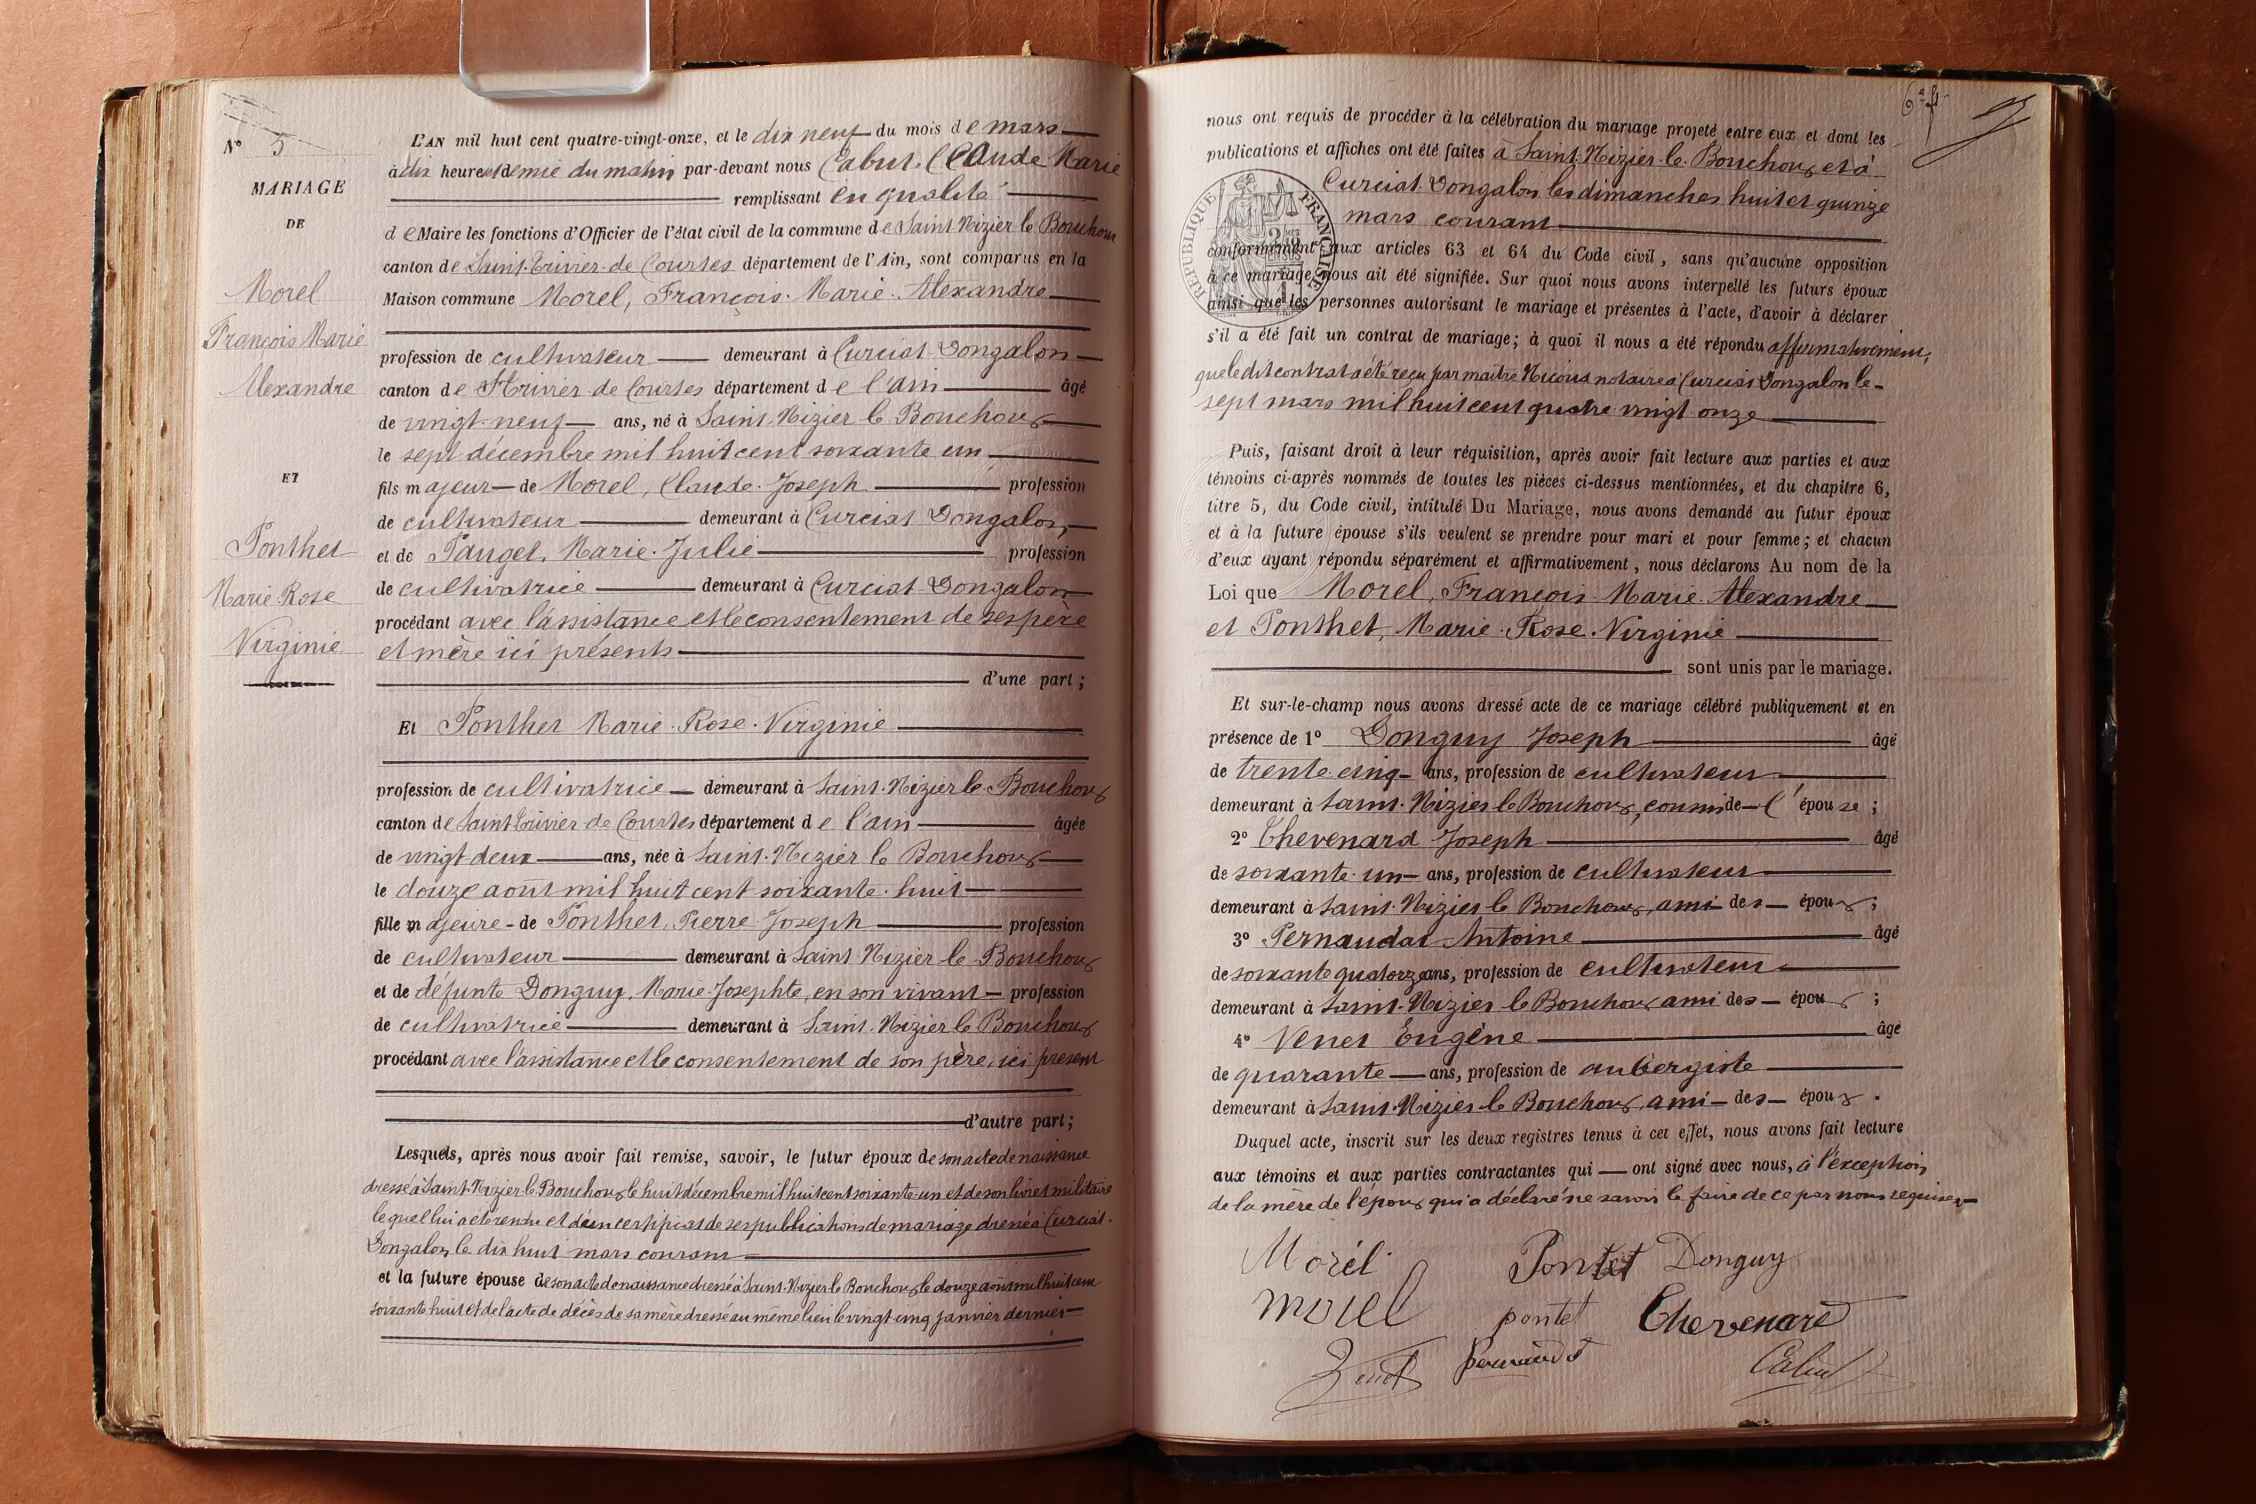 N° 5
MARIAGE
DE
Morel
François Marie
Alexandre
ET
Ponthet
Marie Rose
Virginie
L'AN mil huit cent quatre-vingt-onze, et le dix neuf du mois de mars
à dix heures et demie du matin par-devant nous Cabut, Claude Marie
remplissant en qualité
de Maire les fonctions d'Officier de l'état civil de la commune de Saint Nizier le Bouchoux
canton de Saint-Trivier-de Courtes département de l'Ain, sont comparus en la
Maison commune Morel, François-Marie-Alexandre
profession de cultivateur demeurant à Curciat-Dongalon
canton de St Trivier de Courtes département de l'ain âgé
de vingt-neuf ans, né à Saint-Nizier le Bouchoux
le sept décembre mil huit cent soixante un
fils majeur de Morel, Claude-Joseph profession
de cultivateur demeurant à Curciat Dongalon,
et de Pauget, Marie-Julie profession
de cultivatrice demeurant à Curciat Dongalon
procédant avec l'assistance et le consentement de ses père
et mère ici présents
d'une part ;
Et Ponthet Marie-Rose-Virginie
profession de cultivatrice demeurant à Saint-Nizier le Bouchoux
canton de Saint Trivier de Courtes département de l'ain âgée
de vingt deux ans, née à Saint-Nizier le Bouchoux
le douze août mil huit cent soixante-huit
fille majeure de Ponthet, Pierre-Joseph profession
de cultivateur demeurant à Saint Nizier le Bouchoux
et de défunte Donguy, Marie-Josephte, en son vivant profession
de cultivatrice demeurant à Saint-Nizier le Bouchoux
procédant avec l'assistance et le consentement de son père, ici présent
d'autre part ;
Lesquels, après nous avoir fait remise, savoir, le futur époux de son acte de naissance
dressé à Saint-Nizier le Bouchoux le huit décembre mil huit cent soixante-un et de son livret militaire
lequel lui a été rendu et d'un certificat de ses publications de mariage dressé à Curciat-
Dongalon, le dix huit mars courant
et la future épouse de son acte de naissance dressé à Saint-Nizier le Bouchoux le douze août mil huit cent
soixante huit et de l'acte de décès de sa mère dressé au même lieu le vingt cinq janvier dernier
nous ont requis de procéder à la célébration du mariage projeté entre eux et dont les
publications et affiches ont été faites à Saint-Nizier-le-Bouchoux et à
Curciat-Dongalon les dimanches huit et quinze
mars courant
RÉPUBLIQUE FRANÇAISE
conformément aux articles 63 et 64 du Code civil, sans qu'aucune opposition
à ce mariage nous ait été signifiée. Sur quoi nous avons interpellé les futurs époux
ainsi que les personnes autorisant le mariage et présentes à l'acte, d'avoir à déclarer
s'il a été fait un contrat de mariage ; à quoi il nous a été répondu affirmativement,
que le dit contrat a été reçu par maître notaire à Curciat Dongalon le
sept mars mil huit cent quatre vingt onze
Puis, faisant droit à leur réquisition, après avoir fait lecture aux parties et aux
témoins ci-après nommés de toutes les pièces ci-dessus mentionnées, et du chapitre 6,
titre 5, du Code civil, intitulé Du Mariage, nous avons demandé au futur époux
et à la future épouse s'ils veulent se prendre pour mari et pour femme ; et chacun
d'eux ayant répondu séparément et affirmativement, nous déclarons Au nom de la
Loi que Morel, François-Marie-Alexandre
et Ponthet, Marie-Rose-Virginie
sont unis par le mariage.
Et sur-le-champ nous avons dressé acte de ce mariage célébré publiquement et en
présence de 1° Donguy Joseph âgé
de trente-cinq ans, profession de cultivateur
demeurant à Saint-Nizier le Bouchoux, cousin de l'épouse ;
2° Chevenard Joseph âgé
de soixante-un ans, profession de cultivateur
demeurant à Saint-Nizier le Bouchoux, ami des époux ;
3° Pernaudat Antoine âgé
de soixante quatorze ans, profession de cultivateur
demeurant à Saint-Nizier le Bouchoux ami des époux ;
4° Venet Eugène âgé
de quarante ans, profession de aubergiste
demeurant à Saint-Nizier le Bouchoux, ami des époux.
Duquel acte, inscrit sur les deux registres tenus à cet effet, nous avons fait lecture
aux témoins et aux parties contractantes qui ont signé avec nous, à l'exception,
de la mère de l'époux qui a déclaré ne savoir le faire de ce par nous requise
Morel Pontet Donguy
morel pontet Chevenard
Venet Pernaudat Cabut